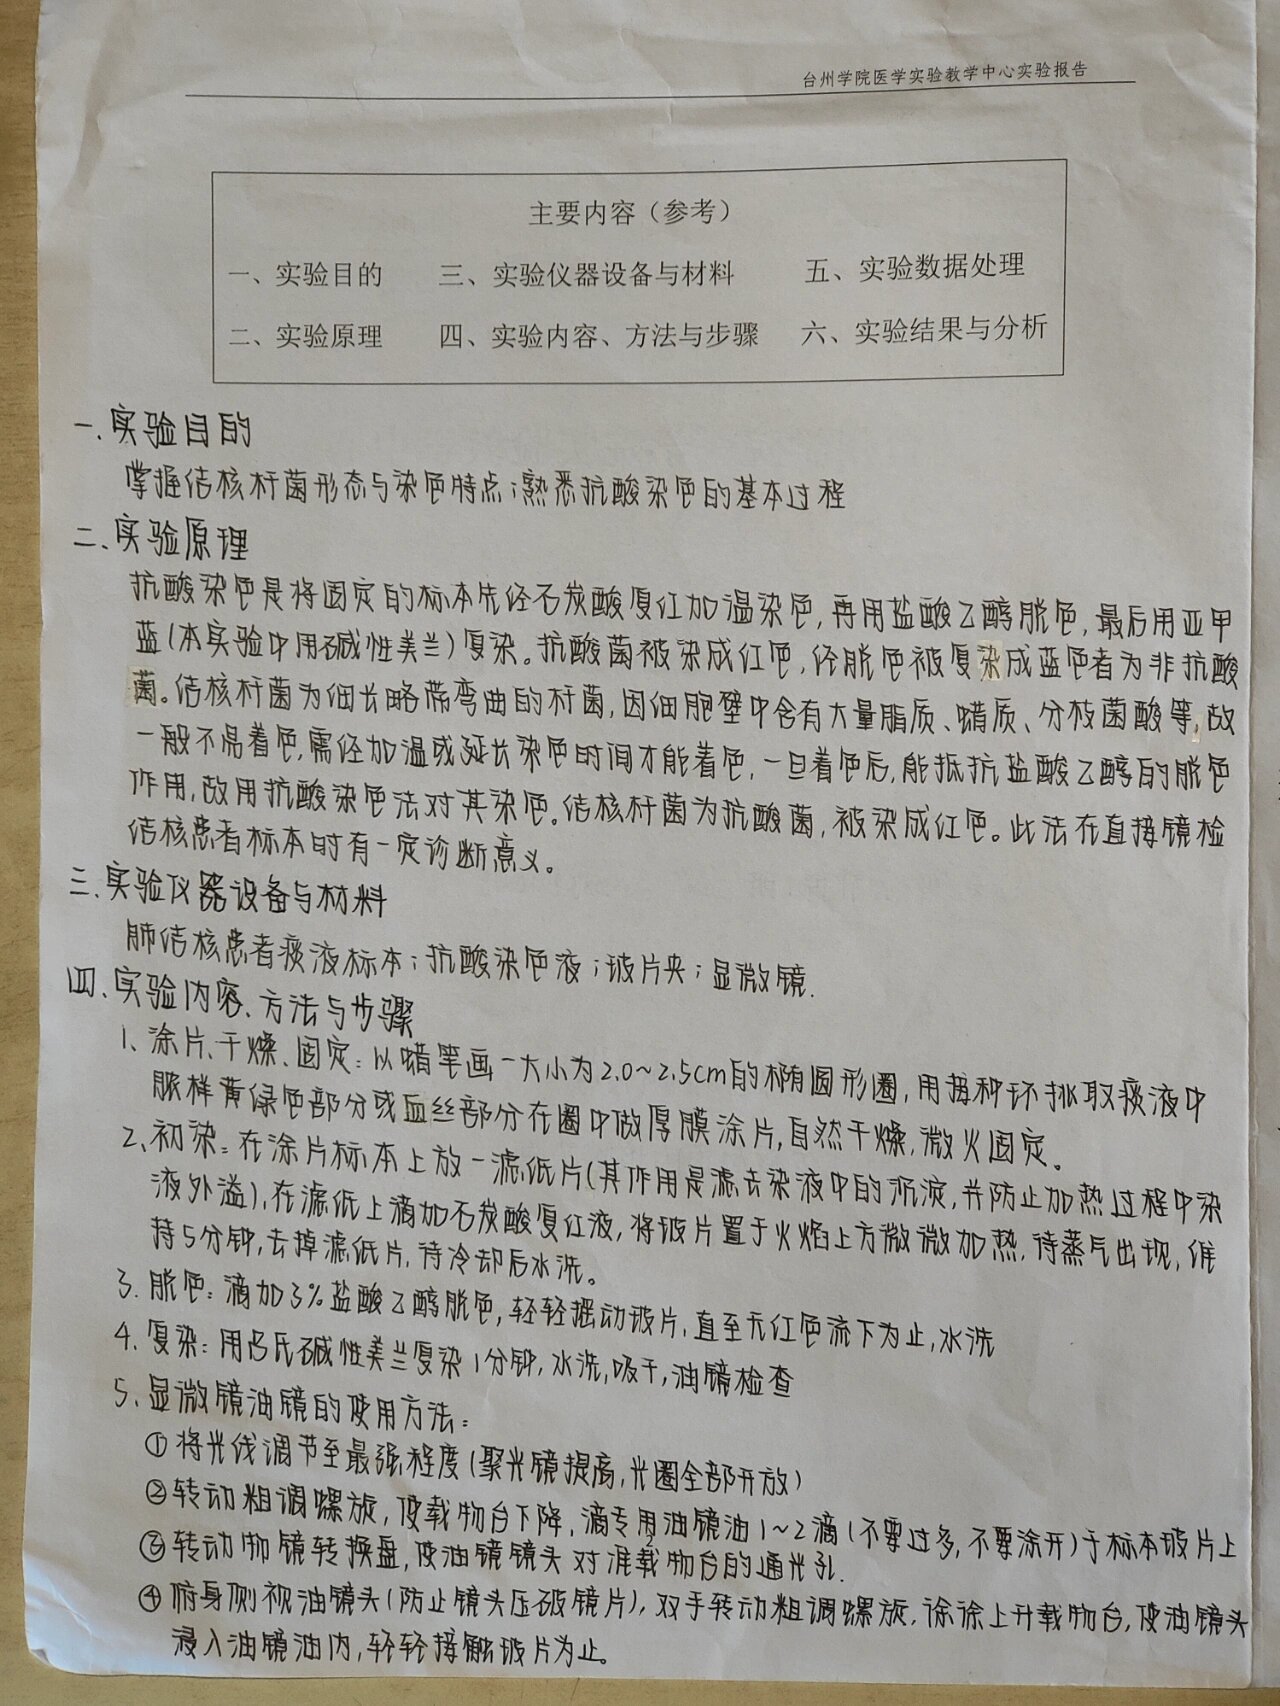 台州学院医学实验教学中心实验报告
主要内容（参考）
一、实验目的 三、实验仪器设备与材料 五、实验数据处理
二、实验原理 四、实验内容、方法与步骤 六、实验结果与分析
一、实验目的
掌握结核杆菌形态与染色特点；熟悉抗酸染色的基本过程
二、实验原理
抗酸染色是将固定的标本先经石炭酸复红加温染色，再用盐酸乙醇脱色，最后用亚甲
蓝（本实验中用碱性美兰）复染。抗酸菌被染成红色，经脱色被复染成蓝色者为非抗酸
菌。结核杆菌为细长略带弯曲的杆菌，因细胞壁中含有大量脂质、蜡质、分枝菌酸等，故
一般不易着色，需经加温或延长染色时间才能着色，一旦着色后，能抵抗盐酸乙醇的脱色
作用，故用抗酸染色法对其染色。结核杆菌为抗酸菌，被染成红色。此法在直接镜检
结核患者标本时有一定诊断意义。
三、实验仪器设备与材料
肺结核患者痰液标本；抗酸染色液；玻片夹；显微镜.
四、实验内容、方法与步骤
1、涂片、干燥、固定：以蜡笔画一大小为2.0~2.5cm的椭圆形圈，用接种环挑取痰液中
脓样黄绿色部分或血丝部分在圈中做厚膜涂片，自然干燥，微火固定。
2、初染：在涂片标本上放一滤纸片（其作用是滤去染液中的沉淀，并防止加热过程中染
液外溢），在滤纸上滴加石炭酸复红液，将玻片置于火焰上方微微加热，待蒸气出现，维
持5分钟，去掉滤纸片，待冷却后水洗。
3、脱色：滴加3%盐酸乙醇脱色，轻轻摇动玻片，直至无红色流下为止，水洗
4、复染：用吕氏碱性美兰复染1分钟，水洗，吸干，油镜检查
5、显微镜油镜的使用方法：
①将光线调节至最强程度（聚光镜提高，光圈全部开放）
②转动粗调螺旋，使载物台下降，滴专用油镜油1~2滴（不要过多，不要涂开）于标本玻片上
③转动物镜转换盘，使油镜镜头对准载物台的通光孔.
④俯身侧视油镜头（防止镜头压破镜片），双手转动粗调螺旋，徐徐上升载物台，使油镜头
浸入油镜油内，轻轻接触玻片为止。